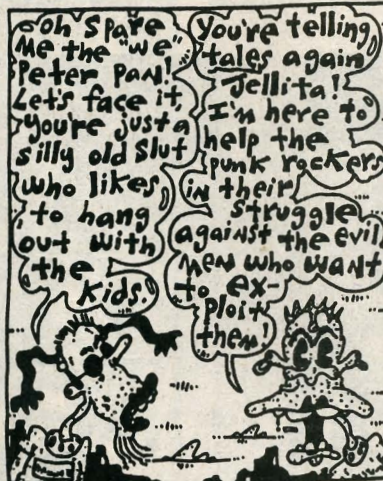 Oh Spare
Me the "we"
Peter Pan!
Let's face it,
you're just a
silly old slut
who likes
to hang
out with
the
kids.
You're telling
tales again
Jellita!
I'm here to
help the
punk rockers
in their
struggle
against the evil
men who want
to ex-
ploit
them!